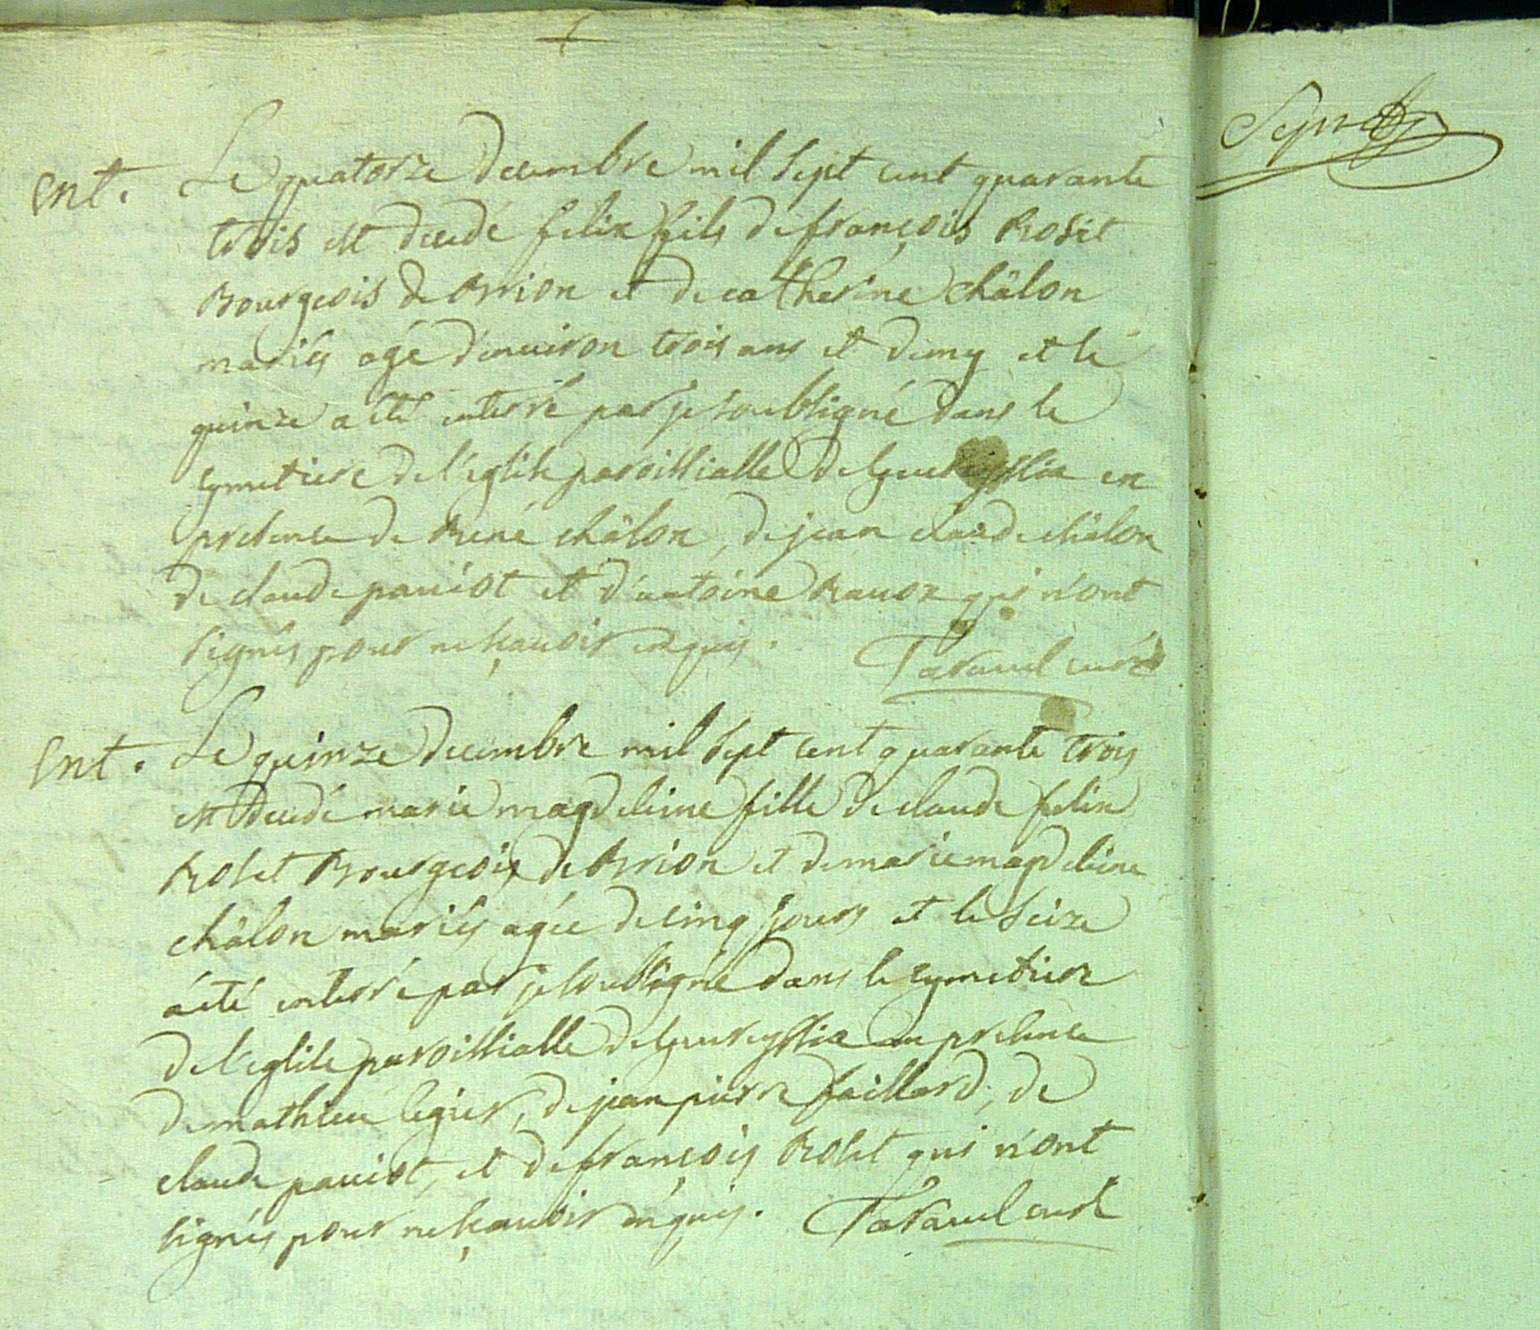 ent. Le quatorze decembre mil sept cent quarante
trois est decedé felix fils de françois Roset
Bourgeois de Brion et de catherine châlon
mariés agé d'enuiron trois ans et demy et le
quinze a été enterré par je soubsigné dans le
cymetiere de l'eglise paroissialle de en
presence de René châlon, de jean claude châlon
de claude pauiot et d'antoine Rauoz qui n'ont
signés pour ne sçauoir enquis. Tarauel curé
Ent. Le quinze decembre mil sept cent quarante trois
est decedé marie magdeleine fille de claude felix
Roset Bourgeois de Brion et de marie magdeleine
châlon mariés agée de cinq jours et le seize
a été enterré par je soubsigné dans le cymetiere
de l'eglise paroissialle de en presence
de mathieu legier, de jean pierre faillard, de
claude pauiot, et de françois Roset qui n'ont
signés pour ne sçauoir enquis. Tarauel curé